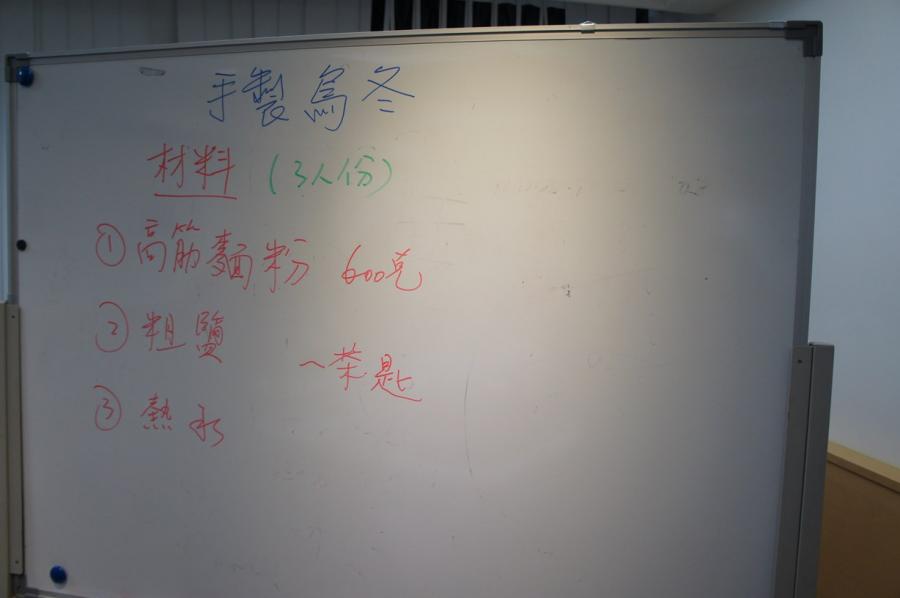 手製烏冬
材料 (3人份)
①高筋麵粉 600克
②粗鹽 一茶匙
③熱水